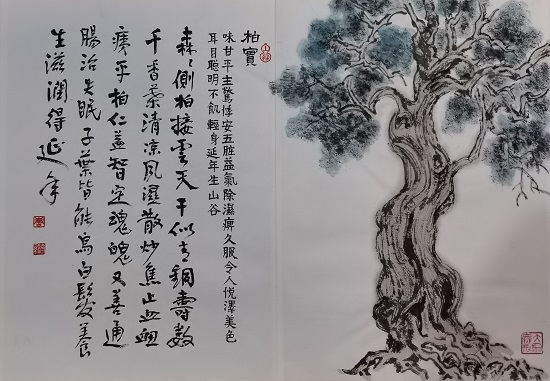 柏實
味甘平主驚悸安五脏益氣除濕痹久服令人悦澤美色
耳目聰明不飢輕身延年生山谷
森〻側柏接雲天干似青銅壽數
千香葉清凉風濕散炒焦止血
平柏仁益智定魂魄又善通
腸治失眠子葉皆能烏白髮養
生滋潤得延年